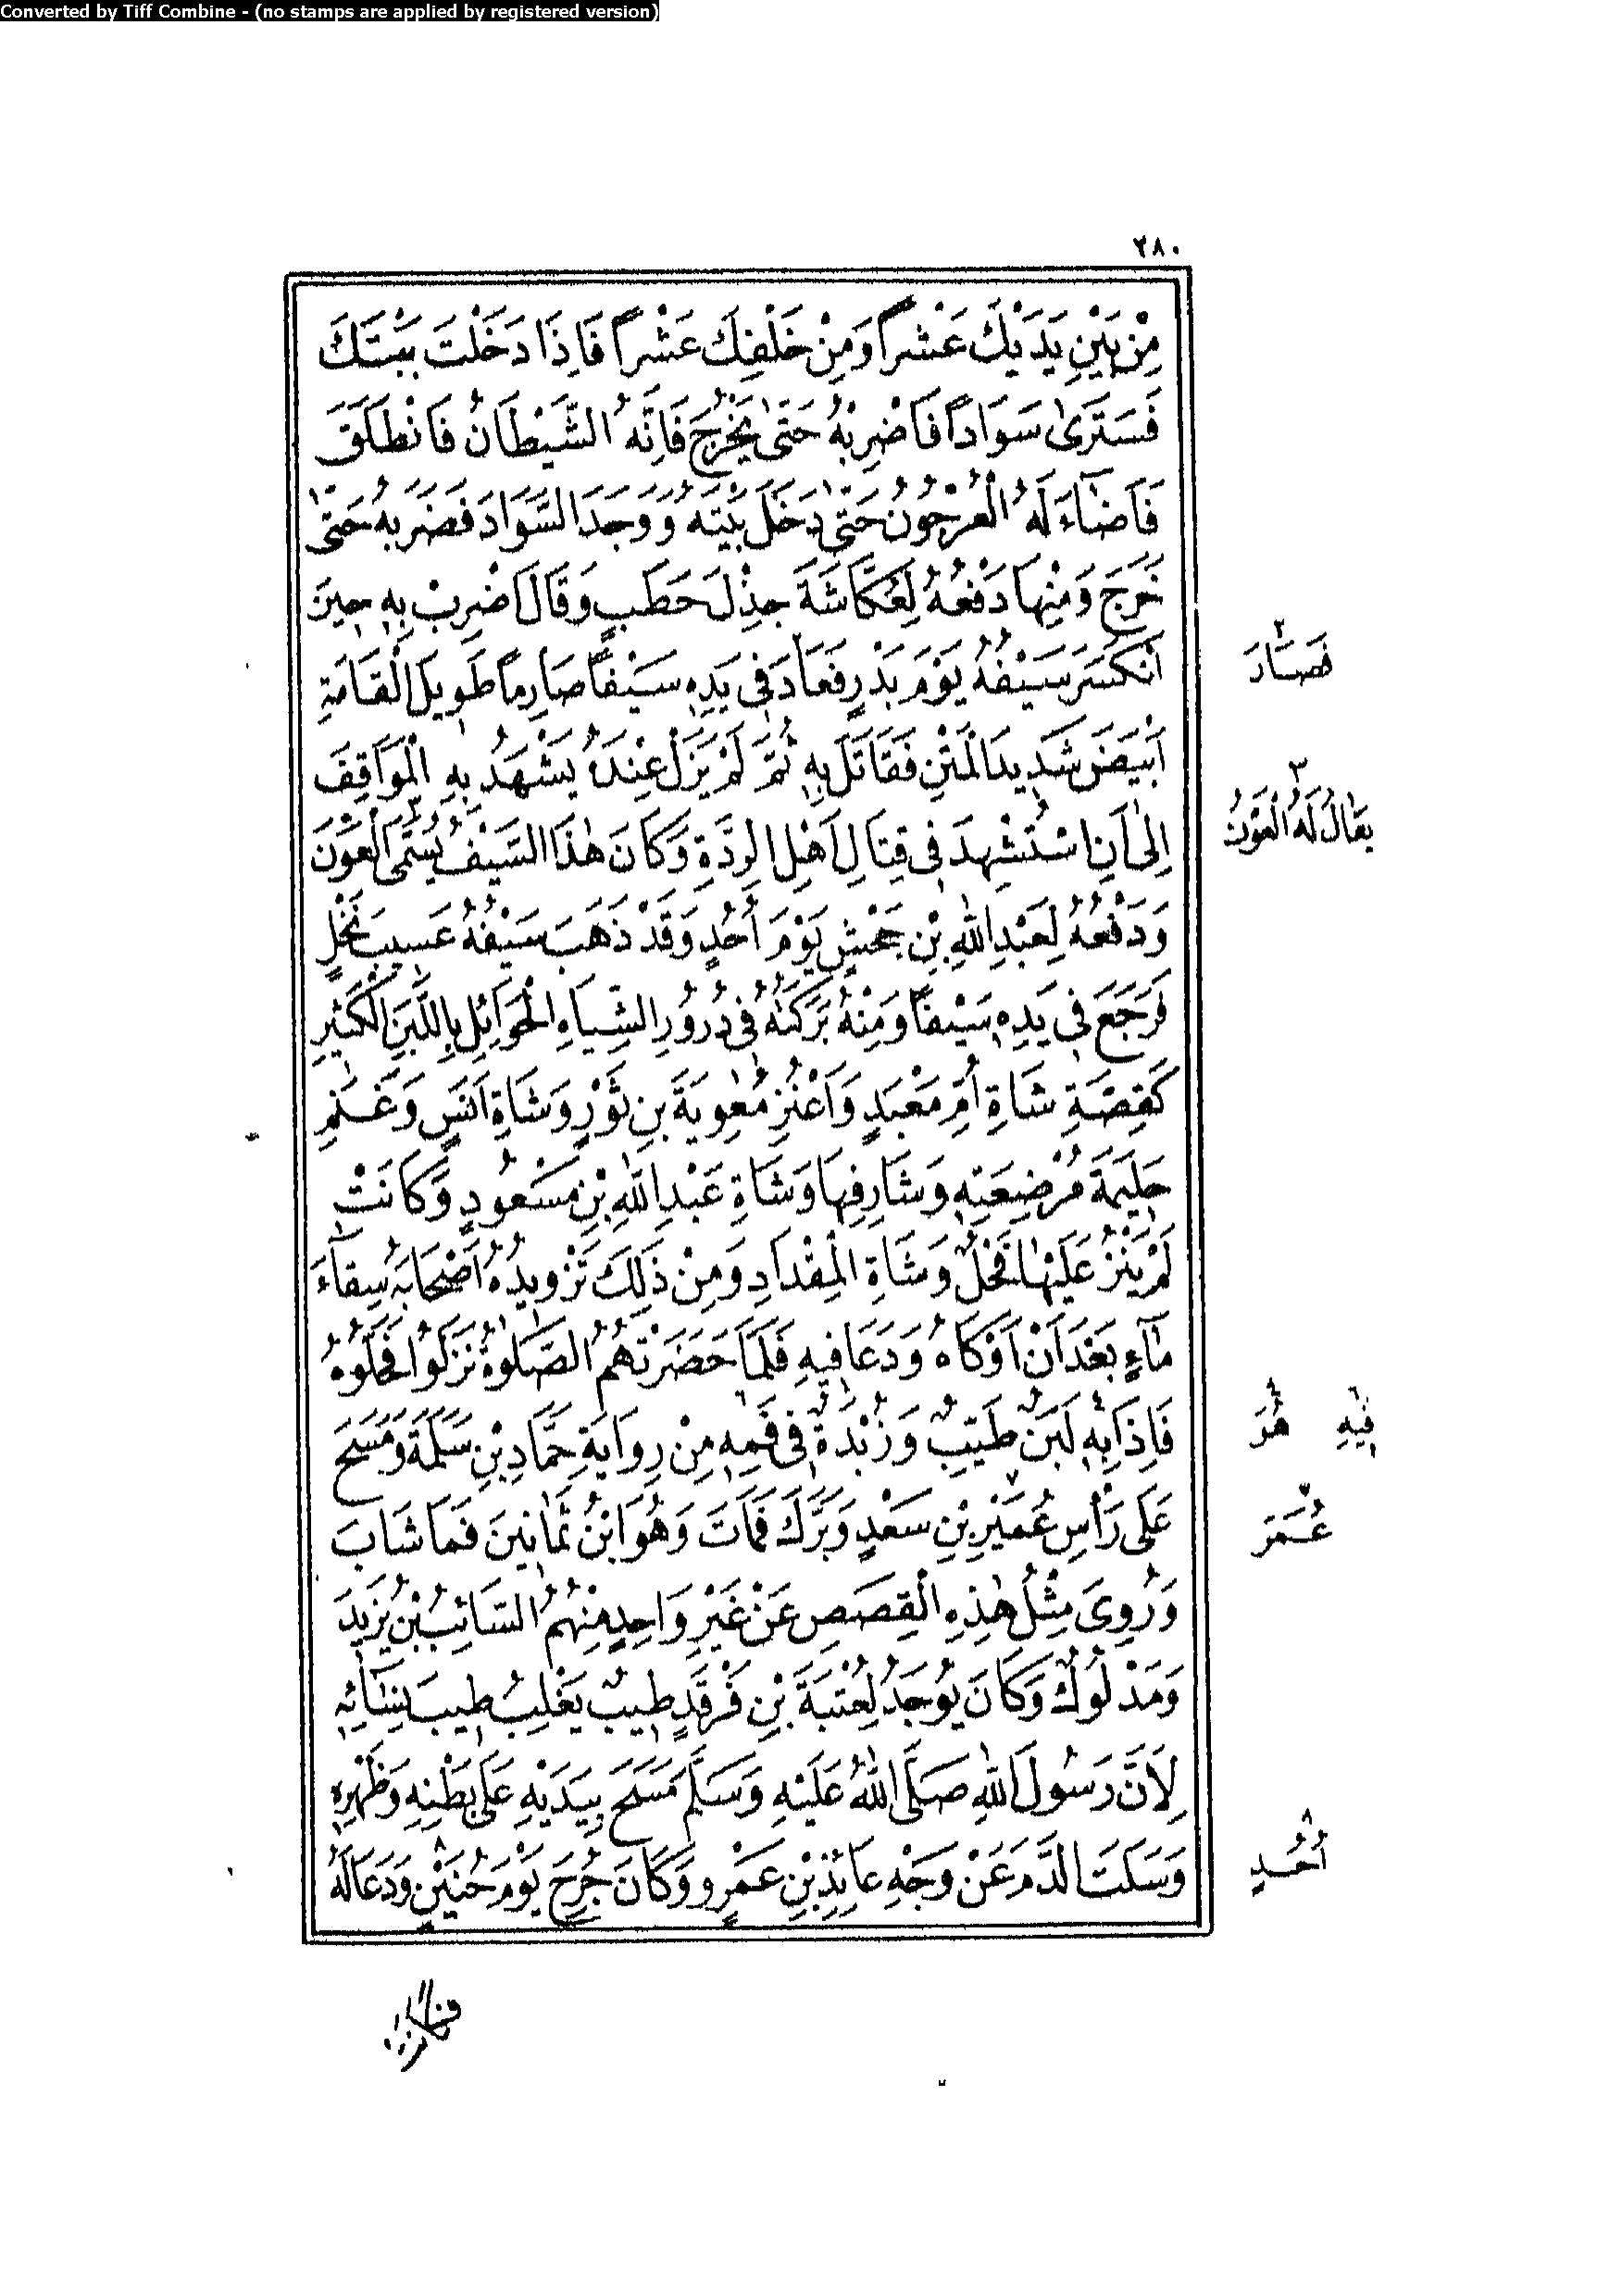 Converted by Tiff Combine - (no stamps are applied by registered version)
٢٨٠
مِنْ بَيْنِ يَدَيْكَ عَشْراً وَمِنْ خَلْفِكَ عَشْراً فَاِذَا دَخَلْتَ بَيْتَكَ
فَسَتَرىٰ سَوَاداً فَاضْرِبْهُ حَتّىٰ يَخْرُجَ فَاِنَّهُ الشَّيْطَانُ فَانْطَلَقَ
فَاَضَاءَ لَهُ الْعُرْجُونُ حَتّىٰ دَخَلَ بَيْتَهُ وَوَجَدَ السَّوَادَ فَضَرَبَهُ حَتّىٰ
خَرَجَ وَمِنْهَا دَفْعُهُ لِعُكَّاشَةَ جِذْلَ حَطَبٍ وَقَالَ اضْرِبْ بِهِ حِينَ
اَنْكَسَرَ سَيْفُهُ يَوْمَ بَدْرٍ فَعَادَ فِى يَدِهِ سَيْفاً صَارِماً طَوِيلَ الْقَامَةِ
فَصَارَ ٢
اَبْيَضَ شَدِيدَ الْمَتْنِ فَقَاتَلَ بِهِ ثُمَّ لَمْ يَزَلْ عِنْدَهُ يَشْهَدُ بِهِ الْمَوَاقِفَ
اِلىٰ اَنِ اسْتُشْهِدَ فِى قِتَالِ اَهْلِ الرِّدَّةِ وَكَانَ هٰذَا السَّيْفُ يُسَمَّى الْعَوْنَ
يُقَالُ لَهُ الْعَوْنُ ٣
وَدَفْعُهُ لِعَبْدِ اللّٰهِ بْنِ جَحْشٍ يَوْمَ اُحُدٍ وَقَدْ ذَهَبَ سَيْفُهُ عَسِيبَ نَخْلٍ
فَرَجَعَ فِى يَدِهِ سَيْفاً وَمِنْهُ بَرَكَتُهُ فِى دُرُورِ الشِّيَاهِ الْحَوَائِلِ بِاللَّبَنِ الْكَثِيرِ
كَقِصَّةِ شَاةِ اُمِّ مَعْبَدٍ وَاَعْنُزِ مُعٰوِيَةَ بْنِ ثَوْرٍ وَشَاةِ اَنَسٍ وَغَنَمِ
حَلِيمَةَ مُرْضِعَتِهِ وَشَارِفِهَا وَشَاةِ عَبْدِ اللّٰهِ بْنِ مَسْعُودٍ وَكَانَتْ
لَمْ يَنْزُ عَلَيْهَا فَحْلٌ وَشَاةِ الْمِقْدَادِ وَمِنْ ذَلِكَ تَزْوِيدُهُ اَصْحَابَهُ سِقَاءَ
مَاءٍ بَعْدَ اَنْ اَوْكَاهُ وَدَعَا فِيهِ فَلَمَّا حَضَرَتْهُمُ الصَّلٰوةُ نَزَلُوا فَحَلُّوهُ
فَاِذَا بِهِ لَبَنٌ طَيِّبٌ وَزُبْدَةٌ فِى فَمِهِ مِنْ رِوَايَةِ حَمَّادِ بْنِ سَلَمَةَ وَمَسَحَ
فِيهِ
عَلَى رَأْسِ عُمَيْرِ بْنِ سَعْدٍ وَبَرَّكَ فَمَاتَ وَهُوَ ابْنُ ثَمَانِينَ فَمَا شَابَ
عُمَرَ
وَرُوِىَ مِثْلُ هٰذِهِ الْقِصَصِ عَنْ غَيْرِ وَاحِدٍ مِنْهُمُ السَّائِبُ بْنُ يَزِيدَ
وَمَدْلُوكٌ وَكَانَ يُوجَدُ لِعُتْبَةَ بْنِ فَرْقَدٍ طِيبٌ يَغْلِبُ طِيبَ نِسَائِهِ
لِاَنَّ رَسُولَ اللّٰهِ صَلَّى اللّٰهُ عَلَيْهِ وَسَلَّمَ مَسَحَ بِيَدَيْهِ عَلَى بَطْنِهِ وَظَهْرِهِ
وَسَلَتَ الدَّمَ عَنْ وَجْهِ عَائِذِ بْنِ عَمْرٍو وَكَانَ جُرِحَ يَوْمَ حُنَيْنٍ وَدَعَا لَهُ
اُحُدٍ ٨